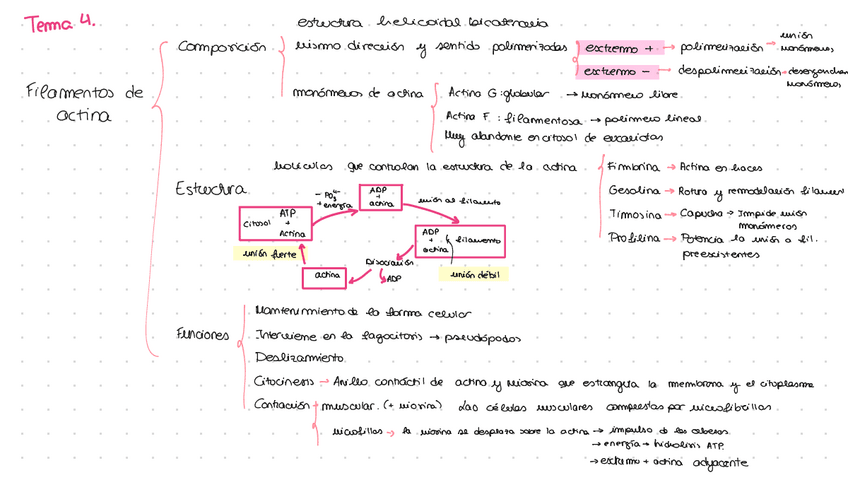 Tema 4.
Filamentos de actina
Composición
estructura helicoidal bicatenaria
misma dirección y sentido polimerizadas
extremo + → polimerización → unión monómeros
extremo - → despolimerización → desenganchan monómeros
monómeros de actina
Actina G: globular → monómero libre.
Actina F: filamentosa → polímero lineal.
Muy abundante en citosol de eucariotas
Estructura
moléculas que controlan la estructura de la actina
Fimbrina → Actina en haces
Gesolina → Rotura y remodelación filamen
Timosina → Capucha → Impide unión monómeros
Profilina → Potencia la unión a fil. preexistentes
Citosol ATP + Actina
unión fuerte
+ energía
ADP + actina
unión al filamento
ADP + actina filamento
unión débil
Disociación
ADP
actina
Funciones
Mantenimiento de la forma celular
Interviene en la fagocitosis → pseudópodos
Deslizamiento.
Citocinesis → Anillo contráctil de actina y miosina que estrangula la membrana y el citoplasma
Contracción muscular. (+ miosina) Las células musculares compuestas por microfibrillas.
→ la miosina se desplaza sobre la actina → impulso de las cabezas
→ energía → hidrólisis ATP.
→ extremo + actina adyacente